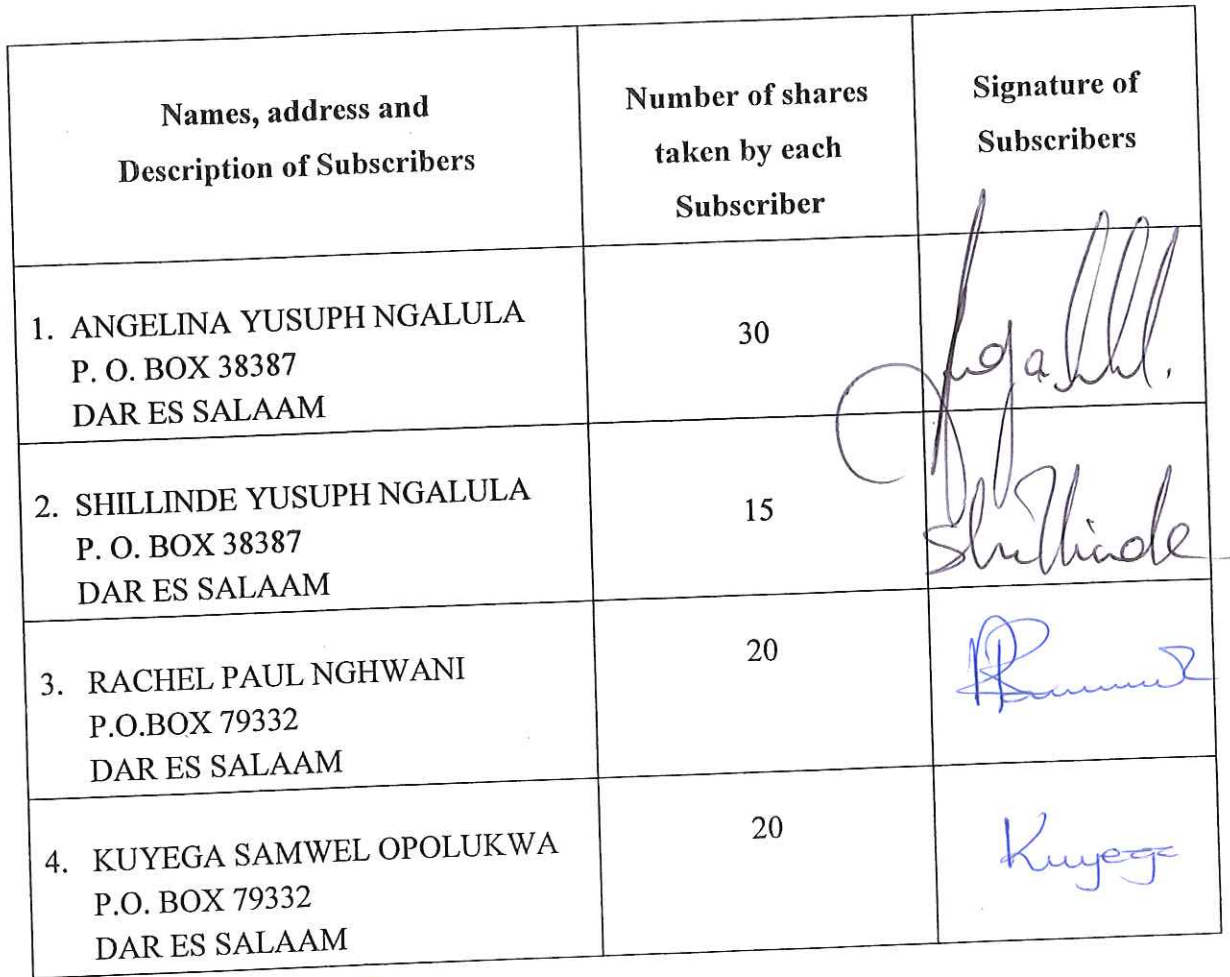 Names, address and
Description of Subscribers
Number of shares
taken by each
Subscriber
Signature of
Subscribers
1. ANGELINA YUSUPH NGALULA
P. O. BOX 38387
DAR ES SALAAM
30
2. SHILLINDE YUSUPH NGALULA
P. O. BOX 38387
DAR ES SALAAM
15
Shillinde
3. RACHEL PAUL NGHWANI
P.O.BOX 79332
DAR ES SALAAM
20
4. KUYEGA SAMWEL OPOLUKWA
P.O. BOX 79332
DAR ES SALAAM
20
Kuyega